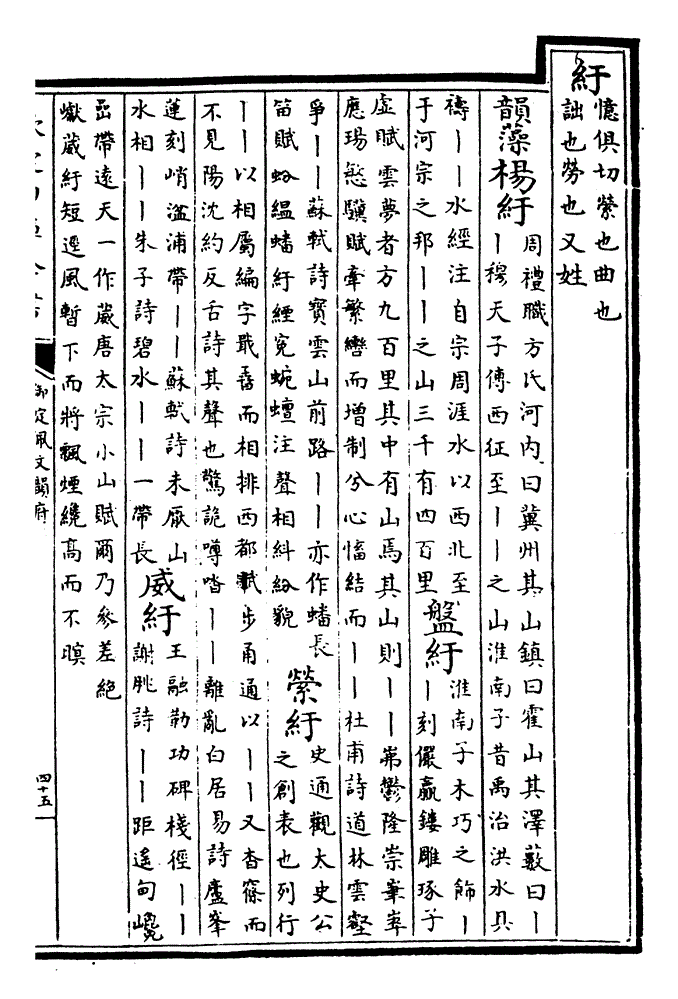 紆
憶俱切縈也曲也
詘也勞也又姓
韻藻楊紆
周禮職方氏河內曰冀州其山鎮曰霍山其澤藪曰丨
丨穆天子傳西征至丨丨之山淮南子昔禹治洪水具
禱丨丨水經注自宗周瀍水以西北至
于河宗之邦丨丨之山三千有四百里
盤紆
淮南子木巧之飾丨
丨刻儼蠃鏤雕琢子
虛賦雲夢者方九百里其中有山焉其山則丨丨岪鬱隆崇嵂崒
應瑒慜驥賦牽繁轡而增制兮心慉結而丨丨杜甫詩道林雲壑
爭丨丨蘇軾詩寶雲山前路丨丨亦作蟠長
笛賦蚡緼蟠紆緸冤蜿蟺注聲相糾紛貌
縈紆
史通觀太史公
之創表也列行
丨丨以相屬編字戢孴而相排西都賦步甬通以丨丨又杳窱而
不見陽沈約反舌詩其聲也驚詭噂沓丨丨離亂白居易詩廬峯
蓮刻峭湓浦帶丨丨蘇軾詩未厭山
水相丨丨朱子詩碧水丨丨一帶長
威紆
王融勒功碑棧徑丨丨
謝朓詩丨丨距遙甸巉
嵒帶遠天一作葳唐太宗小山賦爾乃參差絕
巘葳紆短逕風暫下而將飄煙纔高而不暝
御定佩文韻府
四十五